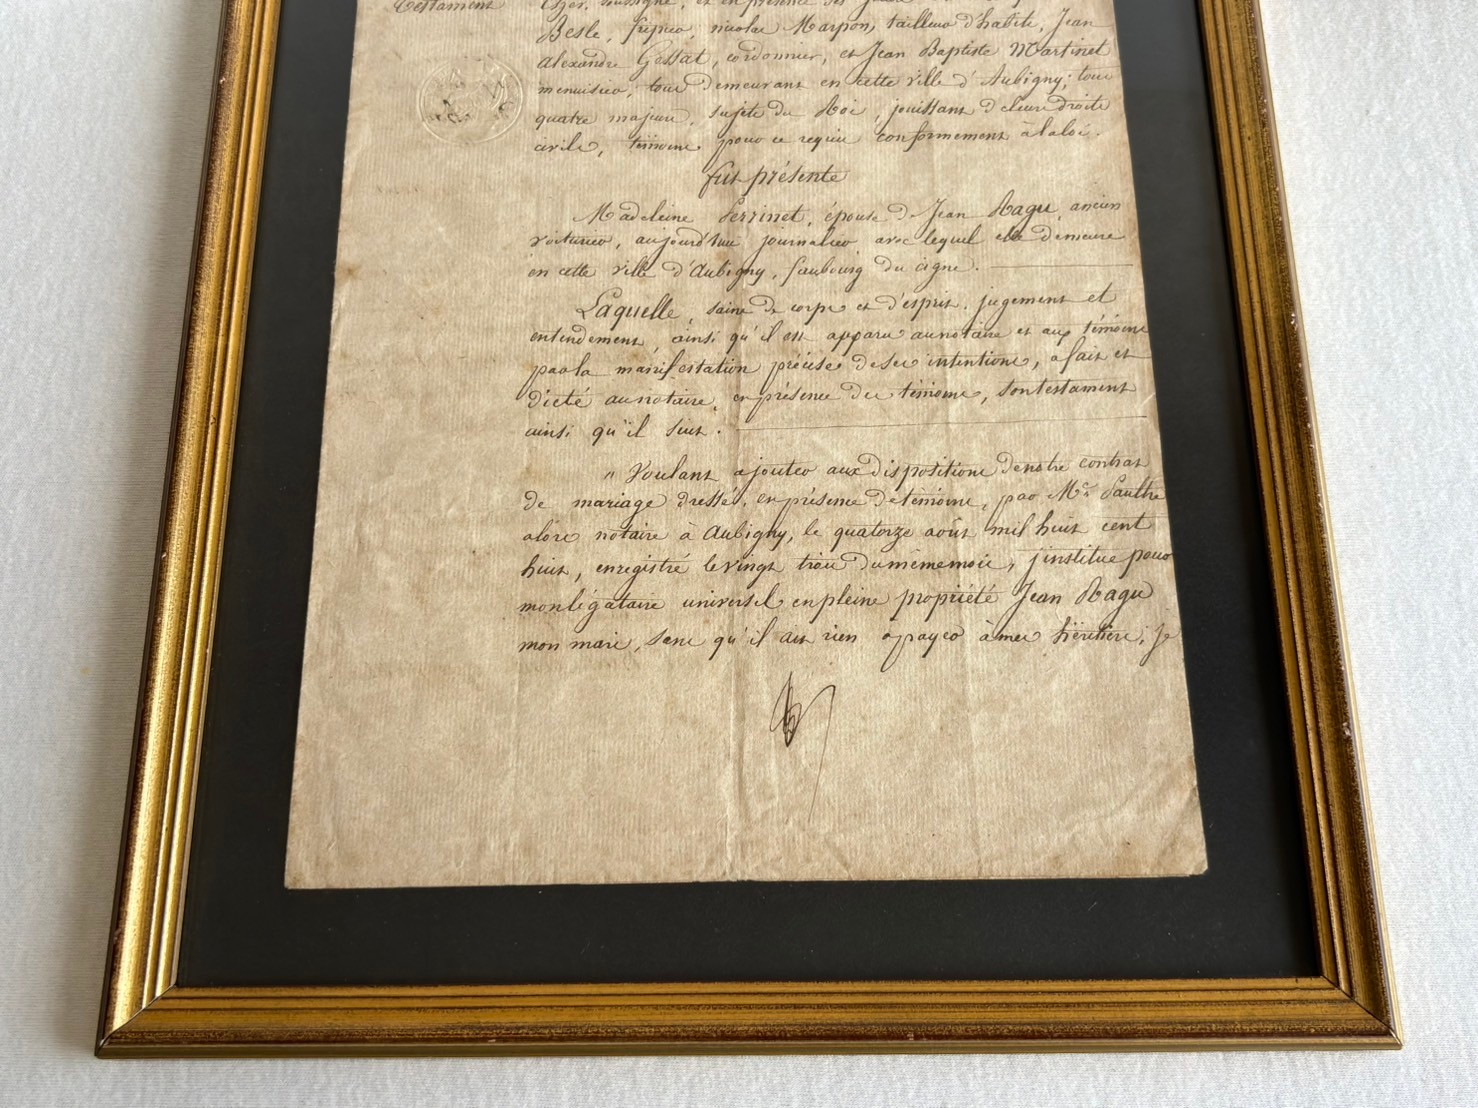 Testament
Cher, soussigné, et en présence des
Besle, fripier, nicolas Marpon, tailleur d'habits, Jean
alexandre Gossat, cordonnier, et Jean Baptiste Martinet
menuisier, tous demeurant en cette ville d'Aubigny; tous
quatre majeurs, sujets du Roi, jouissant de leurs droits
civils, témoins pour ce requis conformement à la loi.
fut présente
Madeleine Perrinet, épouse de Jean Ragu, ancien
voiturier, aujourd'hui journalier, avec lequel elle demeure
en cette ville d'Aubigny, faubourg du cigne.
Laquelle, saine de corps et d'esprit, jugement et
entendement, ainsi qu'il est apparu au notaire et aux témoins
par la manifestation précise de ses intentions, a fait et
dicté au notaire, en présence des témoins, son testament
ainsi qu'il suit.
" Voulant ajouter aux dispositions de notre contrat
de mariage dressé, en présence de témoins, par Me. Paultre
alors notaire à Aubigny, le quatorze août mil huit cent
huit, enregistré le vingt trois du même mois, j'institue pour
mon légataire universel en pleine propriété Jean Ragu
mon mari, sans qu'il ait rien à payer à mes héritiers; je